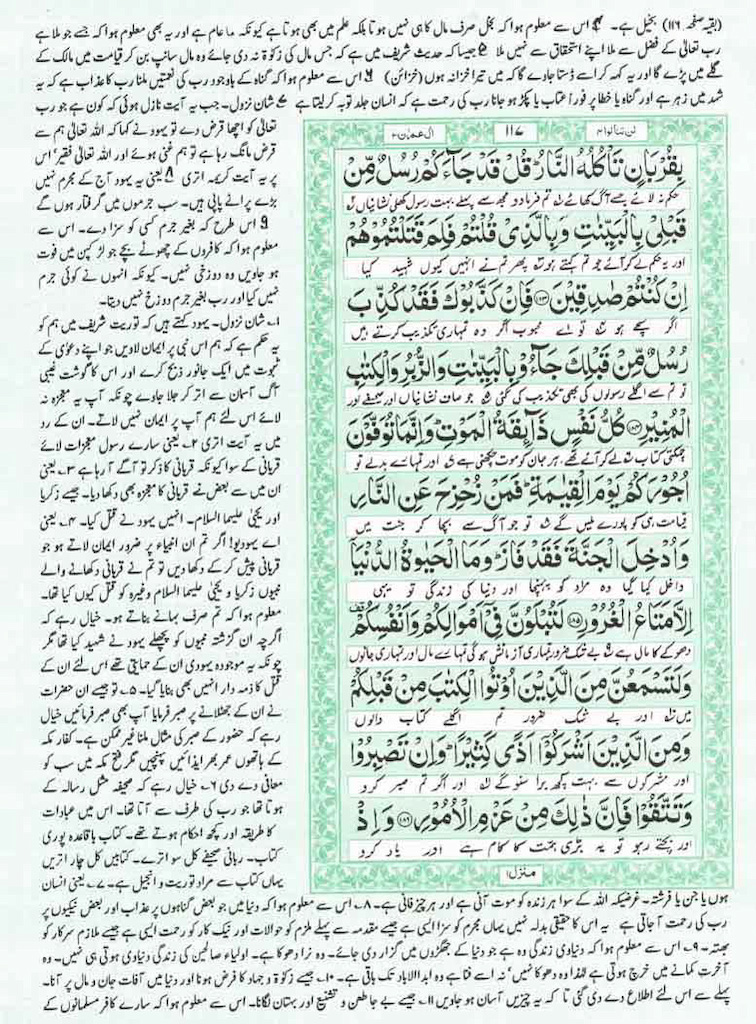 (بقیہ صفحہ ۱۱۶) بخیل ہے۔ ۴ اس سے معلوم ہوا کہ بخل صرف مال کا ہی نہیں ہوتا بلکہ علم میں بھی ہوتا ہے کیونکہ ما عام ہے اور یہ بھی معلوم ہوا کہ جسے جو ملا ہے
رب تعالیٰ کے فضل سے ملا اپنے استحقاق سے نہیں ملا ۵ جیسا کہ حدیث شریف میں ہے کہ جس مال کی زکوٰۃ نہ دی جائے وہ مال سانپ بن کر قیامت میں مالک کے
گلے میں پڑے گا اور یہ کہہ کر اسے ڈستا جاوے گا کہ میں تیرا خزانہ ہوں (خزائن) ۶ اس سے معلوم ہوا کہ گناہ کے باوجود رب کی نعمتیں ملنا رب کا عذاب ہے کہ یہ
شہد میں زہر ہے اور گناہ یا خطا پر فوراً عتاب یا پکڑ ہو جانا رب کی رحمت ہے کہ انسان جلد توبہ کر لیتا ہے ۷ شان نزول۔ جب یہ آیت نازل ہوئی کہ کون ہے جو رب
تعالیٰ کو اچھا قرض دے تو یہود نے کہا کہ اللہ تعالیٰ ہم سے
قرض مانگ رہا ہے تو ہم غنی ہوئے اور اللہ تعالیٰ فقیر' اس
پر یہ آیت کریمہ اتری ۸ یعنی یہ یہود آج کے مجرم نہیں
بڑے پرانے پاپی ہیں۔ سب جرموں میں گرفتار ہوں گے
۹ اس طرح کہ بغیر جرم کسی کو سزا دے۔ اس سے
معلوم ہوا کہ کافروں کے چھوٹے بچے جو لڑکپن میں فوت
ہو جاویں وہ دوزخی نہیں۔ کیونکہ انہوں نے کوئی جرم
نہیں کیا اور رب بغیر جرم دوزخ نہیں دیتا۔
۱۔ شان نزول۔ یہود کہتے ہیں کہ توریت شریف میں ہم کو
یہ حکم ہے کہ ہم اس نبی پر ایمان لاویں جو اپنے دعویٰ کے
ثبوت میں ایک جانور ذبح کرے اور اس کا گوشت غیبی
آگ آسمان سے اتر کر جلا جاوے چونکہ آپ یہ معجزہ نہ
لائے اس لئے ہم آپ پر ایمان نہیں لاتے۔ ان کے رد
میں یہ آیت اتری ۲۔ یعنی سارے رسول معجزات لائے
قربانی کے سوا کیونکہ قربانی کا ذکر تو آگے آ رہا ہے ۳۔ یعنی
ان میں سے بعض نے قربانی کا معجزہ بھی دکھا دیا۔ جیسے زکریا
اور یحییٰ علیہما السلام۔ انہیں یہود نے قتل کیا۔ ۴۔ یعنی
اے یہودیو! اگر تم ان انبیاء پر ضرور ایمان لاتے ہو جو
قربانی پیش کر کے دکھا دیں تو تم نے قربانی دکھانے والے
نبیوں زکریا و یحییٰ علیہما السلام وغیرہ کو قتل کیوں کیا تھا۔
معلوم ہوا کہ تم صرف بہانے بناتے ہو۔ خیال رہے کہ
اگرچہ ان گزشتہ نبیوں کو پچھلے یہود نے شہید کیا تھا مگر
چونکہ یہ موجودہ یہودی ان کے حمایتی تھے اس لئے ان کے
قتل کا ذمہ دار انہیں بھی بنایا گیا۔ ۵۔ تو جیسے ان حضرات
نے ان کے جھٹلانے پر صبر فرمایا آپ بھی صبر فرمائیں خیال
رہے کہ حضور کے صبر کی مثال ملنا غیر ممکن ہے۔ کفار مکہ
کے ہاتھوں عمر بھر ایذائیں پہنچیں مگر فتح مکہ میں سب کو
معافی دے دی ۶۔ خیال رہے کہ صحیفہ مثل رسالہ کے
ہوتا تھا جو رب کی طرف سے آتا تھا۔ اس میں عبادات
کا طریقہ اور کچھ احکام ہوتے تھے۔ کتاب باقاعدہ پوری
کتاب۔ ربانی صحیفے کل سو اترے۔ کتابیں کل چار اتریں
یہاں کتاب سے مراد توریت و انجیل ہے۔ ۷۔ یعنی انسان
لن تنالوا ۴
۱۱۷
اٰل عمرٰن ۳
بِقُرْبَانٍ تَاْكُلُهُ النَّارُ ؕ قُلْ قَدْ جَآءَكُمْ رُسُلٌ مِّنْ
حکم نہ لائے جسے آگ کھائے تم فرما دو مجھ سے پہلے بہت رسول کھلی نشانیاں
قَبْلِیْ بِالْبَیِّنٰتِ وَبِالَّذِیْ قُلْتُمْ فَلِمَ قَتَلْتُمُوْهُمْ
اور یہ حکم لے کر آئے جو تم کہتے ہو پھر تم نے انہیں کیوں شہید کیا
اِنْ كُنْتُمْ صٰدِقِیْنَ ۱۸۳ فَاِنْ كَذَّبُوْكَ فَقَدْ كُذِّبَ
اگر سچے ہو تو اے محبوب اگر وہ تمہاری تکذیب کرتے ہیں
رُسُلٌ مِّنْ قَبْلِكَ جَآءُوْ بِالْبَیِّنٰتِ وَالزُّبُرِ وَالْكِتٰبِ
تو تم سے اگلے رسولوں کی بھی تکذیب کی گئی جو صاف نشانیاں اور صحیفے اور
الْمُنِیْرِ ۱۸۴ كُلُّ نَفْسٍ ذَآئِقَةُ الْمَوْتِ ؕ وَاِنَّمَا تُوَفَّوْنَ
چمکتی کتاب لے کر آئے تھے ہر جان کو موت چکھنی ہے اور تمہارے بدلے تو
اُجُوْرَكُمْ یَوْمَ الْقِیٰمَةِ ؕ فَمَنْ زُحْزِحَ عَنِ النَّارِ
قیامت ہی کو پورے ملیں گے تو جو آگ سے بچا کر جنت میں
وَاُدْخِلَ الْجَنَّةَ فَقَدْ فَازَ ؕ وَمَا الْحَیٰوةُ الدُّنْیَاۤ
داخل کیا گیا وہ مراد کو پہنچا اور دنیا کی زندگی تو یہی
اِلَّا مَتَاعُ الْغُرُوْرِ ۱۸۵ لَتُبْلَوُنَّ فِیْۤ اَمْوَالِكُمْ وَاَنْفُسِكُمْ
دھوکے کا مال ہے بے شک ضرور تمہاری آزمائش ہو گی تمہارے مال اور تمہاری جانوں
وَلَتَسْمَعُنَّ مِنَ الَّذِیْنَ اُوْتُوا الْكِتٰبَ مِنْ قَبْلِكُمْ
میں اور بے شک ضرور تم اگلے کتاب والوں
وَمِنَ الَّذِیْنَ اَشْرَكُوْۤا اَذًی كَثِیْرًا ؕ وَاِنْ تَصْبِرُوْا
اور مشرکوں سے بہت کچھ برا سنو گے اور اگر تم صبر کرو
وَتَتَّقُوْا فَاِنَّ ذٰلِكَ مِنْ عَزْمِ الْاُمُوْرِ ۱۸۶ وَاِذْ
اور بچتے رہو تو یہ بڑی ہمت کا کام ہے اور یاد کرو
منزل ۱
ہوں یا جن یا فرشتہ۔ غرضیکہ اللہ کے سوا ہر زندہ کو موت آنی ہے اور ہر چیز فانی ہے۔ ۸۔ اس سے معلوم ہوا کہ دنیا میں جو بعض گناہوں پر عذاب اور بعض نیکیوں پر
رب کی رحمت آ جاتی ہے یہ اس کا حقیقی بدلہ نہیں یہاں مجرم کو سزا ایسی ہے جیسے مقدمہ سے پہلے ملزم کو حوالات اور نیک کار کو رحمت ایسی ہے جیسے ملازم سرکار کو
بھتہ۔ ۹۔ اس سے معلوم ہوا کہ دنیاوی زندگی وہ ہے جو دنیا کے جھگڑوں میں گزار دی جائے۔ وہ نرا دھوکا ہے۔ اولیاء صالحین کی زندگی دنیاوی ہوتی ہی نہیں۔ وہ
آخرت کمانے میں خرچ ہوتی ہے لہٰذا وہ دھوکا نہیں' نہ اسے فنا ہے وہ ابدالآباد تک باقی ہے۔ ۱۰۔ جیسے زکوٰۃ و جہاد کا فرض ہونا اور دنیا میں آفات جان و مال پر آنا۔
پہلے سے اس لئے اطلاع دے دی گئی تا کہ یہ چیزیں آسان ہو جاویں ۱۱۔ جیسے بے جا طعن و تشنیع اور بہتان لگانا۔ اس سے معلوم ہوا کہ سارے کافر مسلمانوں کے